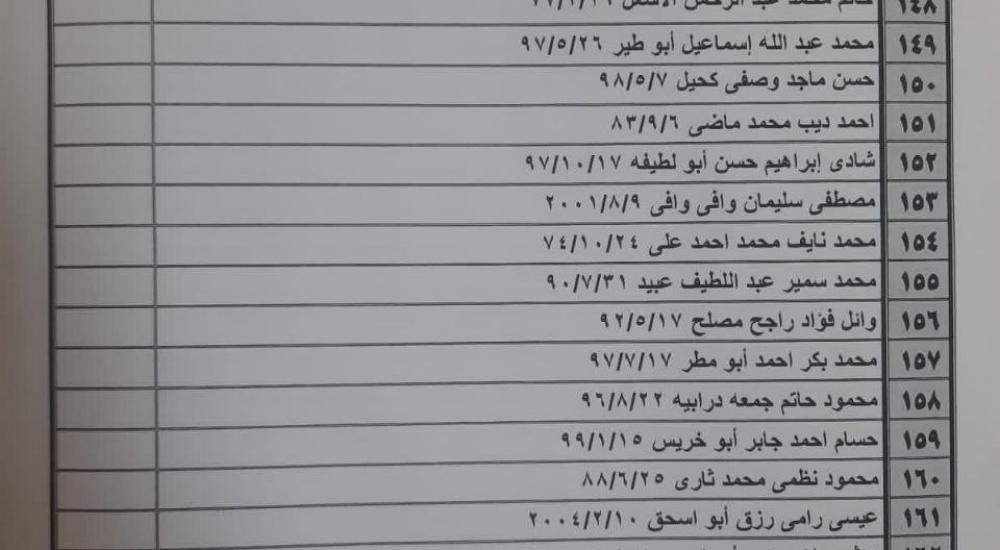 ١٤٨ محمد عبد الرحمن
١٤٩ محمد عبد الله إسماعيل أبو طير ٩٧/٥/٢٦
١٥٠ حسن ماجد وصفى كحيل ٩٨/٥/٧
١٥١ احمد ديب محمد ماضى ٨٣/٩/٦
١٥٢ شادى إبراهيم حسن أبو لطيفه ٩٧/١٠/١٧
١٥٣ مصطفى سليمان وافى وافى ٢٠٠١/٨/٩
١٥٤ محمد نايف محمد احمد على ٧٤/١٠/٢٤
١٥٥ محمد سمير عبد اللطيف عبيد ٩٠/٧/٣١
١٥٦ وائل فؤاد راجح مصلح ٩٢/٥/١٧
١٥٧ محمد بكر احمد أبو مطر ٩٧/٧/١٧
١٥٨ محمود حاتم جمعه درابيه ٩٦/٨/٢٢
١٥٩ حسام احمد جابر أبو خريس ٩٩/١/١٥
١٦٠ محمود نظمى محمد ثارى ٨٨/٦/٢٥
١٦١ عيسى رامى رزق أبو اسحق ٢٠٠٤/٢/١٠